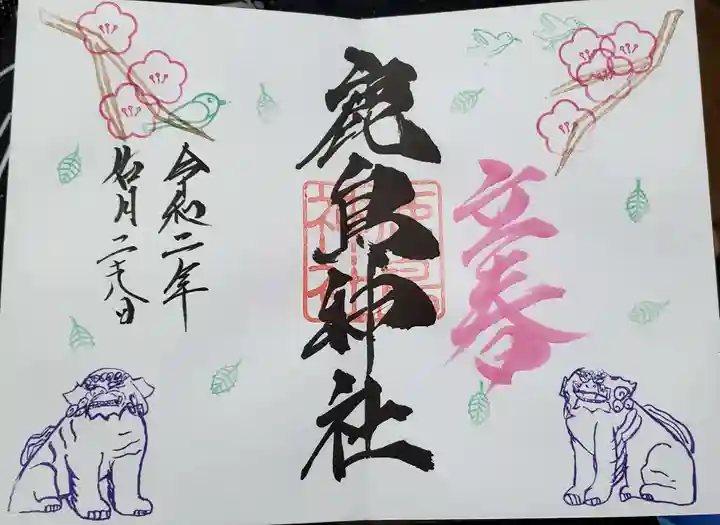 立春
鹿島神社
鹿島
神社
令和二年
如月二十八日